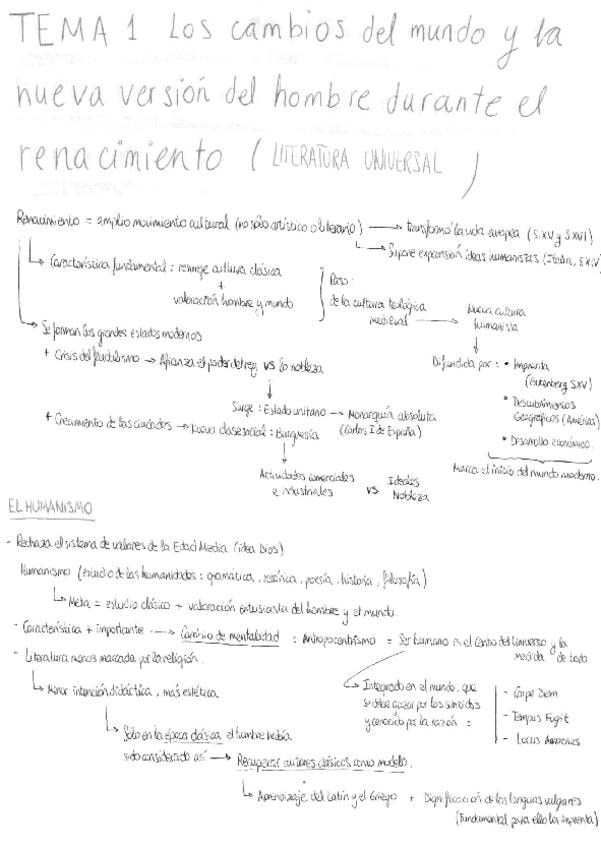 TEMA 1 Los cambios del mundo y la
nueva versión del hombre durante el
renacimiento ( LITERATURA UNIVERSAL )
Renacimiento = amplio movimiento cultural (no sólo artístico o literario) → transformó la vida europea (S.XV y S.XVI)
→ Supone expansión ideas humanistas (Italia, S.XV)
→ Característica fundamental : resurge cultura clásica
+
valoración hombre y mundo
Paso:
de la cultura teológica
medieval →
Nueva cultura
humanista
→ Se forman los grandes estados modernos
+ Crisis del feudalismo → Afianza el poder del rey vs la nobleza
Surge : Estado unitario → Monarquía absoluta
(Carlos I de España)
+ Crecimiento de las ciudades → Nueva clase social : Burguesía
Actividades comerciales
e industriales
vs
Ideales
Nobleza
Difundida por : • Imprenta
(Gutenberg S.XV)
• Descubrimientos
Geográficos (América)
• Desarrollo económico.
Marca el inicio del mundo moderno.
EL HUMANISMO
- Rechaza el sistema de valores de la Edad Media (idea Dios)
Humanismo (estudio de las humanidades : gramática, retórica, poesía, historia, filosofía)
→ Meta = estudio clásico + valoración entusiasta del hombre y el mundo.
- Característica + importante → Cambio de mentalidad : Antropocentrismo = Ser humano es el centro del universo y la
medida de todo
- Literatura menos marcada por la religión.
→ Menor intención didáctica, más estética.
→ Integrado en el mundo, que
se debe gozar por los sentidos
y conocido por la razón :
- Carpe Diem
- Tempus Fugit
- Locus Amoenus
→ Sólo en la época clásica el hombre había
sido considerado así → Recuperar autores clásicos como modelo.
→ Aprendizaje del Latín y el Griego + Dignificación de las lenguas vulgares
(Fundamental para ello la imprenta)